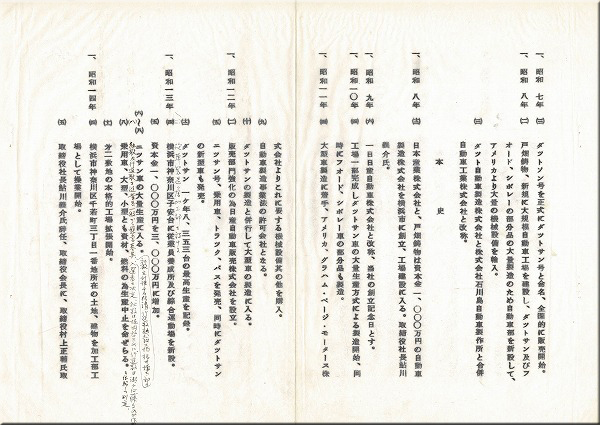 一、昭和 七年㈢ ダットソン号を正式にダットサン号と命名、全国的に販売開始。
一、昭和 八年㈡ 戸畑鋳物、新規に大規模自動車工場を建設し、ダットサン及びフ
オード、シボレーの部分品の大量製造のため自動車部を新設して、
アメリカより大量の機械設備を輸入。
㈢ ダット自動車製造株式会社と株式会社石川島自動車製作所と合併
自動車工業株式会社と改称。
本史
一、昭和 八年 日本産業株式会社と、戸畑鋳物は資本金一、〇〇〇万円の自動車
製造株式会社を横浜市に創立、工場建設に入る。取締役社長鮎川
義介氏。
一、昭和 九年㈥ 一日日産自動車株式会社と改称、当社の創立記念日とす。
一、昭和一〇年㈣ 工場一部完成しダットサン車の大量生産方式による製造開始、同
時にフオード、シボレー車の部分品も製造。
一、昭和一一年㈣ 大型車製造に着手、アメリカ、グラハム・ページ・モータース株
式会社よりこれに要する機械設備其の他を購入。
㈨ 自動車製造事業法の許可会社となる。
㈩ ダットサンの製造と併行して大型車の製造に入る。
一、昭和一二年㈡ 販売部門強化の為日産自動車販売株式会社を設立。
㈤ ニッサン号、乗用車、トラック、バスを発売、同時にダットサン
の新型車も発売。
ダットサン 一ケ年八、三五三台の最高生産を記録。
一、昭和一三年㈣ 横浜市神奈川区子安台に従業員養成所及び綜合運動場を新設。
資本金一、〇〇〇万円を三、〇〇〇万円に増加。
ニッサン車の大量生産に入る。
㈧ 乗用車、大型、小型とも資材、燃料の為生産中止を命ぜらる。
分工敷地の本格的工場拡張開始。
一、昭和一四年㈣ 横浜市神奈川区千若町三丁目一番地所在の土地、建物を加工部工
場として操業開始。
㈤ 取締役社長鮎川義介氏辞任、取締役会長に、取締役村上正輔氏取